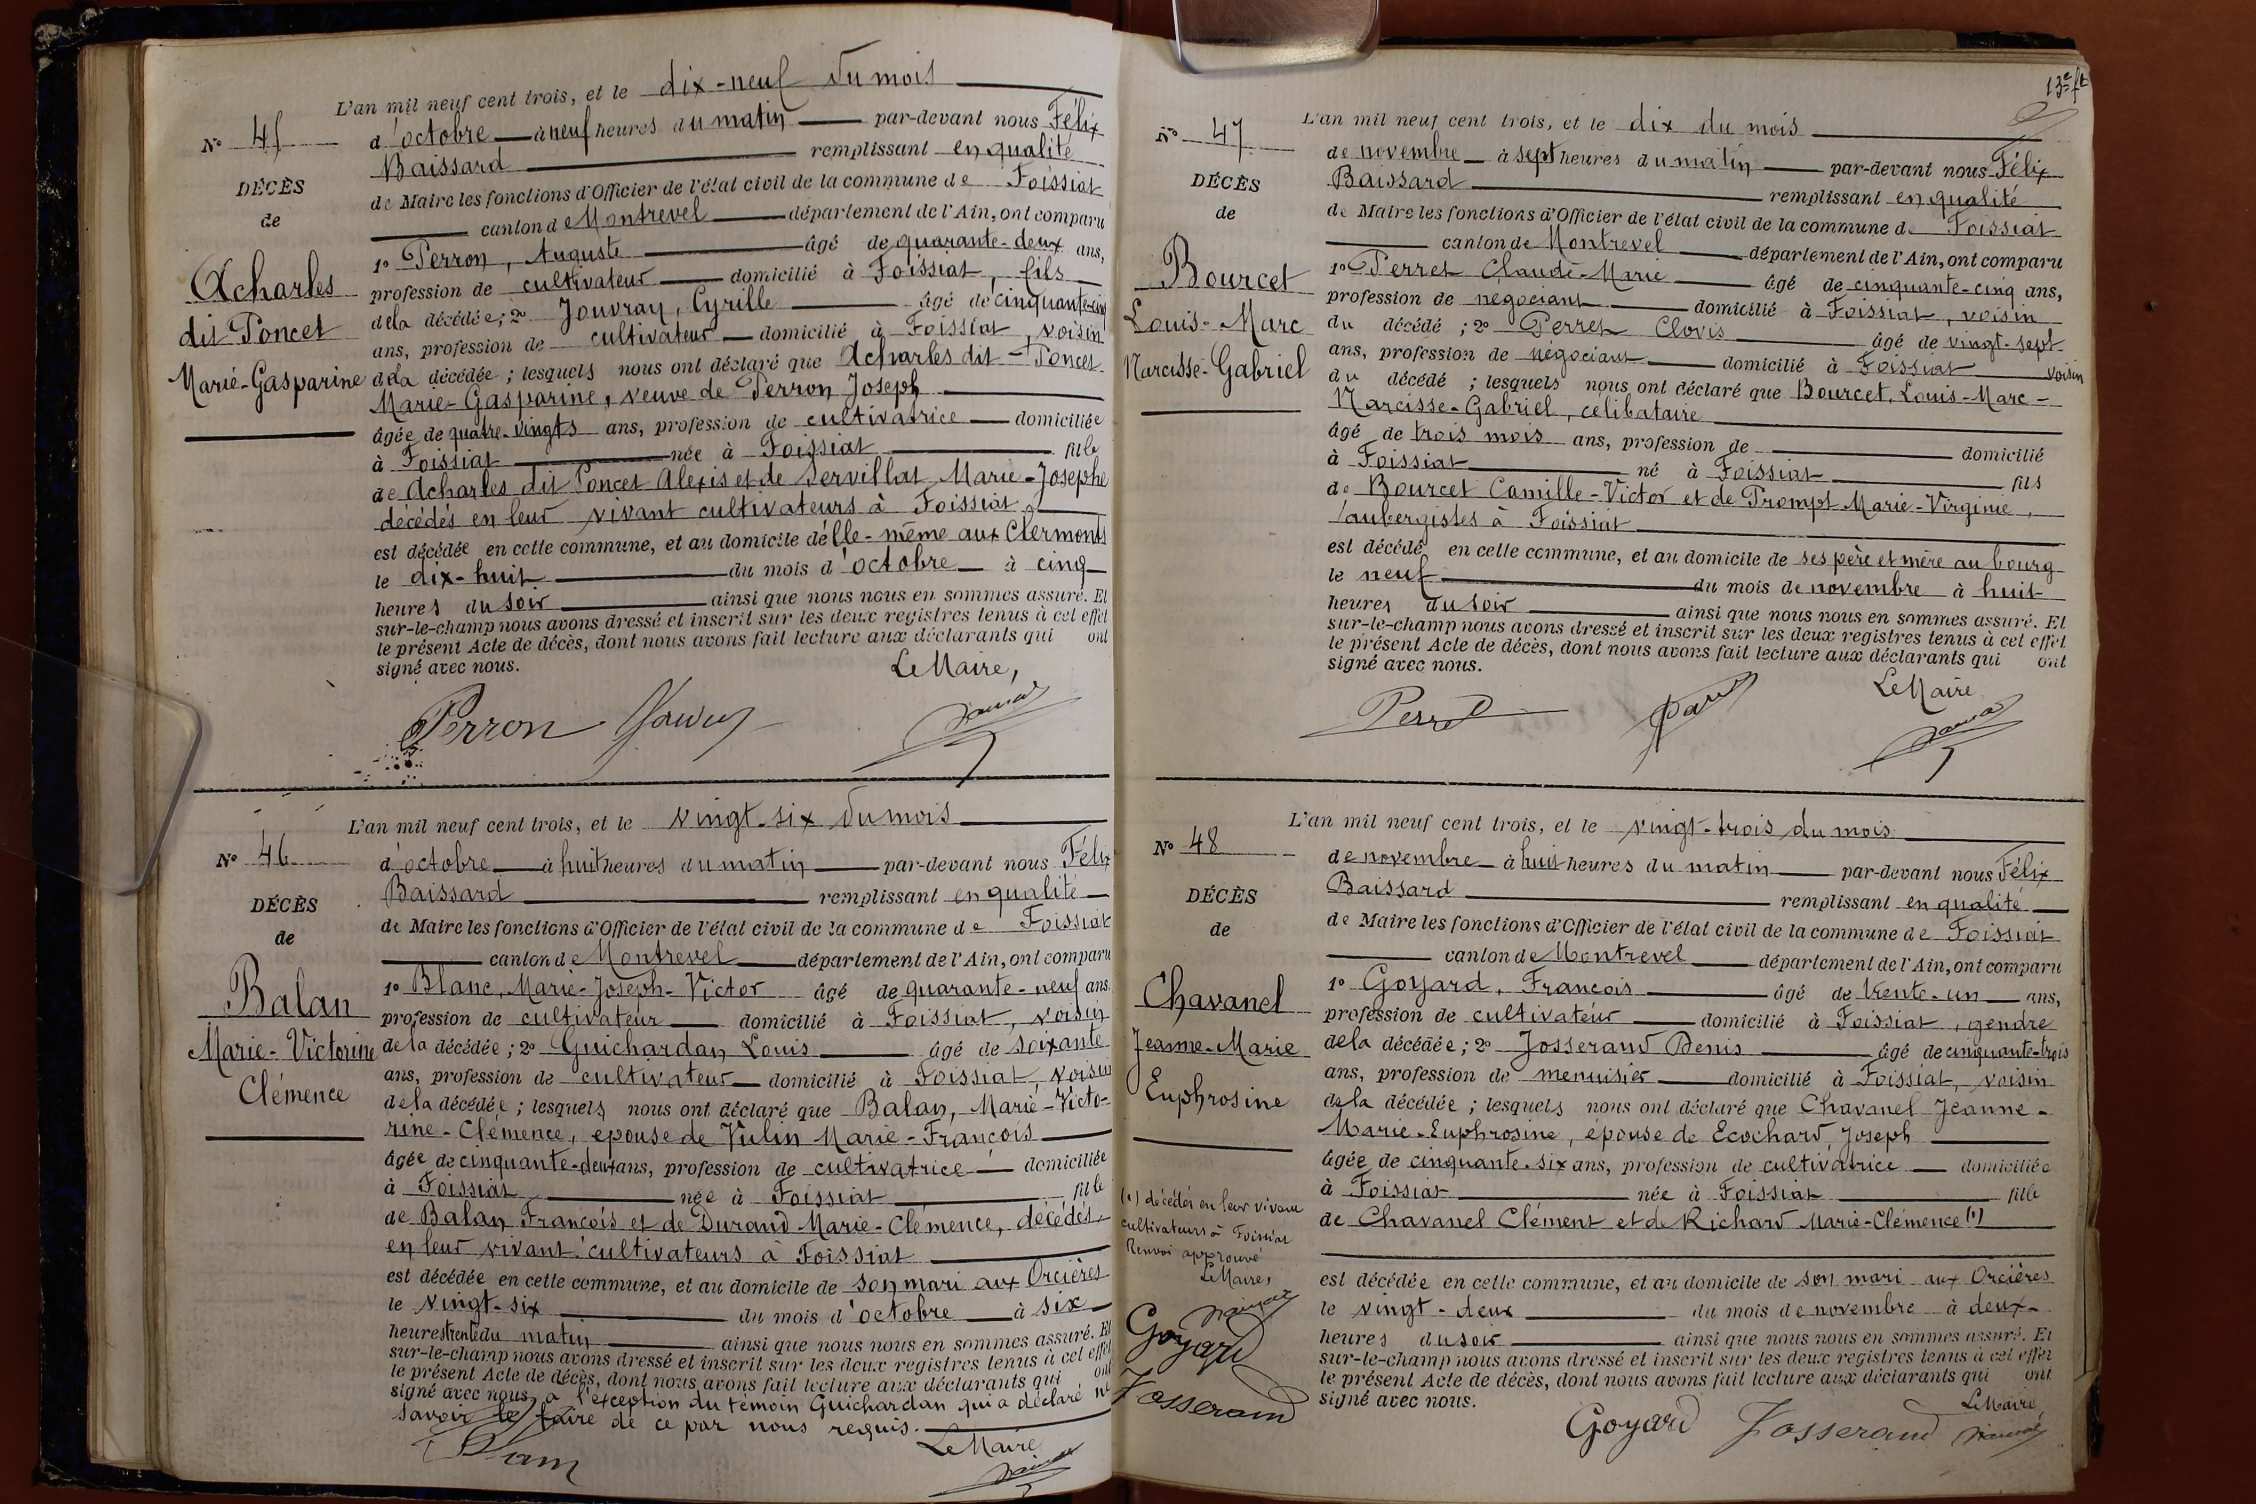 L'an mil neuf cent trois, et le dix-neuf du mois
d'octobre à neuf heures du matin par-devant nous Félix
Baissard remplissant en qualité
de Maire les fonctions d'Officier de l'état civil de la commune de Foissiat
canton de Montrevel département de l'Ain, ont comparu
1° Perron, Auguste âgé de quarante-deux ans,
profession de cultivateur domicilié à Foissiat, fils
de la décédée; 2° Jouvray, Cyrille âgé de cinquante-cinq
ans, profession de cultivateur domicilié à Foissiat, voisin
de la décédée; lesquels nous ont déclaré que Acharles dit-Poncet
Marie-Gasparine, veuve de Perron Joseph
âgée de quatre-vingts ans, profession de cultivatrice domiciliée
à Foissiat née à Foissiat fille
de Acharles dit Poncet Alexis et de Servillat Marie-Josephe
décédés en leur vivant cultivateurs à Foissiat
est décédée en cette commune, et au domicile d'elle-même aux Clermonts
le dix-huit du mois d'octobre à cinq
heures du soir ainsi que nous nous en sommes assuré. Et
sur-le-champ nous avons dressé et inscrit sur les deux registres tenus à cet effet
le présent Acte de décès, dont nous avons fait lecture aux déclarants qui ont
signé avec nous.
Le Maire,
Perron
N° 45
DÉCÈS
de
Acharles
dit Poncet
Marie-Gasparine
L'an mil neuf cent trois, et le vingt-six du mois
d'octobre à huit heures du matin par-devant nous Félix
Baissard remplissant en qualité
de Maire les fonctions d'Officier de l'état civil de la commune de Foissiat
canton de Montrevel département de l'Ain, ont comparu
1° Blanc, Marie-Joseph-Victor âgé de quarante-neuf ans
profession de cultivateur domicilié à Foissiat, voisin
de la décédée; 2° Guichardan Louis âgé de soixante
ans, profession de cultivateur domicilié à Foissiat, voisin
de la décédée; lesquels nous ont déclaré que Balan, Marie-Victo-
rine-Clémence, épouse de Vulin Marie-François
âgée de cinquante-deux ans, profession de cultivatrice domiciliée
à Foissiat née à Foissiat fille
de Balan François et de Durand Marie-Clémence, décédés
en leur vivant cultivateurs à Foissiat
est décédée en cette commune, et au domicile de son mari aux Orcières
le vingt-six du mois d'octobre à six
heures trente du matin ainsi que nous nous en sommes assuré. Et
sur-le-champ nous avons dressé et inscrit sur les deux registres tenus à cet effet
le présent Acte de décès, dont nous avons fait lecture aux déclarants qui ont
signé avec nous, à l'exception du témoin Guichardan qui a déclaré ne
savoir le faire de ce par nous requis.
Le Maire
N° 46
DÉCÈS
de
Balan
Marie-Victorine
Clémence
13e ft
L'an mil neuf cent trois, et le dix du mois
de novembre à sept heures du matin par-devant nous Félix
Baissard remplissant en qualité
de Maire les fonctions d'Officier de l'état civil de la commune de Foissiat
canton de Montrevel département de l'Ain, ont comparu
1° Perret Claude-Marie âgé de cinquante-cinq ans,
profession de négociant domicilié à Foissiat, voisin
du décédé; 2° Perret Clovis âgé de vingt-sept
ans, profession de négociant domicilié à Foissiat voisin
du décédé; lesquels nous ont déclaré que Bourcet, Louis-Marc-
Narcisse-Gabriel, célibataire
âgé de trois mois ans, profession de domicilié
à Foissiat né à Foissiat fils
de Bourcet Camille-Victor et de Prompt Marie-Virginie,
aubergistes à Foissiat
est décédé en cette commune, et au domicile de ses père et mère au bourg
le neuf du mois de novembre à huit
heures du soir ainsi que nous nous en sommes assuré. Et
sur-le-champ nous avons dressé et inscrit sur les deux registres tenus à cet effet
le présent Acte de décès, dont nous avons fait lecture aux déclarants qui ont
signé avec nous.
Le Maire
Perret
N° 47
DÉCÈS
de
Bourcet
Louis-Marc
Narcisse-Gabriel
L'an mil neuf cent trois, et le vingt-trois du mois
de novembre à huit heures du matin par-devant nous Félix
Baissard remplissant en qualité
de Maire les fonctions d'Officier de l'état civil de la commune de Foissiat
canton de Montrevel département de l'Ain, ont comparu
1° Goyard, François âgé de trente-un ans,
profession de cultivateur domicilié à Foissiat, gendre
de la décédée; 2° Josserand Denis âgé de cinquante-trois
ans, profession de menuisier domicilié à Foissiat, voisin
de la décédée; lesquels nous ont déclaré que Chavanel Jeanne-
Marie-Euphrosine, épouse de Ecochard, Joseph
âgée de cinquante-six ans, profession de cultivatrice domiciliée
à Foissiat née à Foissiat fille
de Chavanel Clément et de Richard Marie-Clémence (1)
est décédée en cette commune, et au domicile de son mari aux Orcières
le vingt-deux du mois de novembre à deux
heures du soir ainsi que nous nous en sommes assuré. Et
sur-le-champ nous avons dressé et inscrit sur les deux registres tenus à cet effet
le présent Acte de décès, dont nous avons fait lecture aux déclarants qui ont
signé avec nous.
Le Maire,
Goyard Josserand
N° 48
DÉCÈS
de
Chavanel
Jeanne-Marie
Euphrosine
(1) décédés en leur vivant
cultivateurs à Foissiat
Renvoi approuvé
Le Maire,
Goyard
Josserand